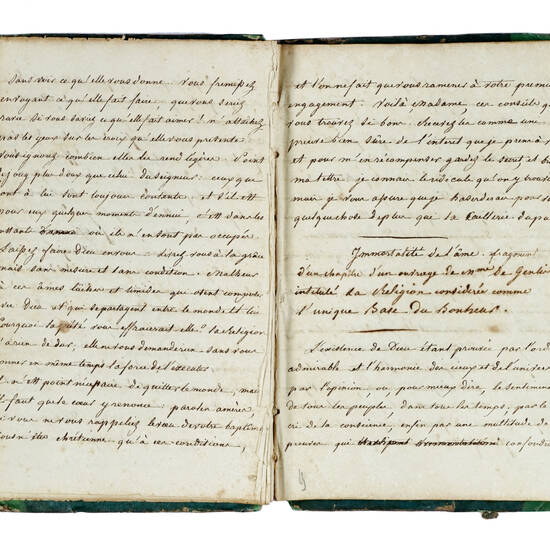 sans voir ce qu'elle vous donne. vous fremissez
envoyant ce qu'elle fait faire, que vous seriez
ravie si vous saviez ce qu'elle fait aimer! n'attachez
pas les yeux sur les croix qu'elle vous presente.
vous ignorez combien elle les rend légère. Point
joug plus doux que celui du seigneur: ceux que
sont à lui sont toujour contents, et s'il est
pour eux quelque moment d'ennui, c'est dans les
où ils n'en sont pas occupés.
Laissez faire Dieu en vous: livrez vous à la grâce
mais sans mesure et sans condition. Malheur
à ces âmes tiedes et timides qui osent compter
avec Dieu et qui se partagent entre le monde et lui
Pourquoi la piété vous effraierait elle? la Religion
n'a rien de dur, elle ne vous demandera rien sans vous
donner en même temps la force de l'executer.
n'est point necessaire de quitter le monde, mai
faut que le cœur y renonce: parole amère,
si vous ne vous rappeliez le vœu de votre baptême
chrétienne qu'à ces conditions,
et l'on ne fait que vous ramener à votre premier
engagement. Voilà Madame, ces conseils que
vous trouvez si bon. Recevez les comme une
preuve bien sûre de l'interet que je prens à
et pour m'en recompenser gardez le secret et
ma lettre je connais le ridicule qu'on y trouve
mais je vous assure que je hazerdeau pour
quelque chose de plus que la raillerie
Immortalité de l'âme. fragment
d'un chapitre d'un ouvrage de Mme. de Genlis
intitulé La Religion considérée comme
l'unique Base du Bonheur.
L'existence de Dieu étant prouvée par l'ordre
admirable et l'harmonie des cieux et de l'univers
par l'opinion, ou, pour mieux dire, le sentiment
de tous les peuples, dans tous les temps, par le
cri de la conscience, enfin par une multitude de
preuves qui confond